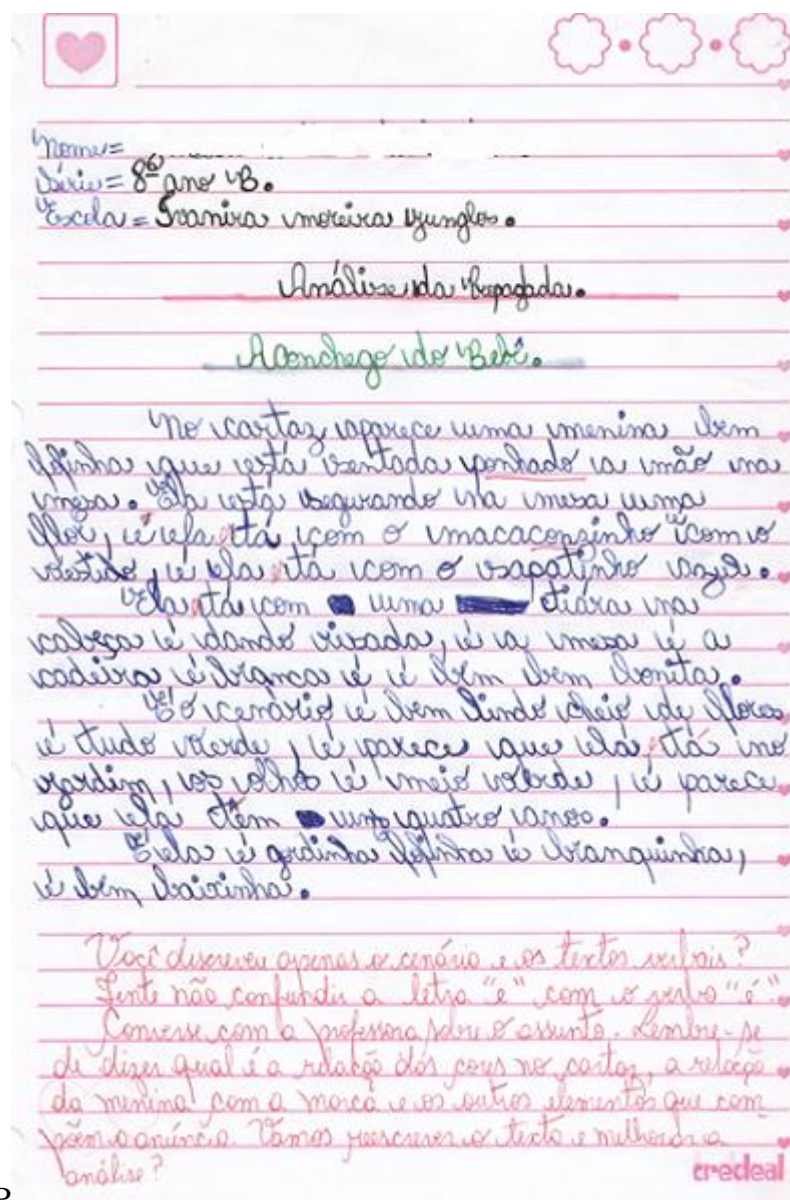 Nome=
Série= 8º ano B.
Escola= Ivanira moreira junglos.
Análise da Propagada.
Aconchego do Bebê.
No cartaz aparece uma menina bem
fofinha que está sentada ponhado a mão na
mesa. Ela está segurando na mesa uma
flor, é ela tá com o macaconzinho com o
vestido, é ela tá com o sapatinho azul.
Ela tá com uma tiára na
cabeça é dando risada, é a mesa é a
cadeira é branca é é bem bem bonita.
É o cenário é bem lindo cheio de flores
é tudo verde, é parece que ela tá no
jardim, os olhos é meio verde, é parece
que ela tém uns quatro anos.
É ela é gordinha fofinha é branquinha,
é bem baixinha.
Você discreveu apenas o cenário e os textos verbais?
Tente não confundir a letra "e" com o verbo "é"
Converse com a professora sobre o assunto. Lembre-se
de dizer qual é a relação das cores no cartaz, a relação
da menina com a marca e os outros elementos que com
põem o anúncio. Vamos reescrever o texto e melhorar a
análise?
credeal